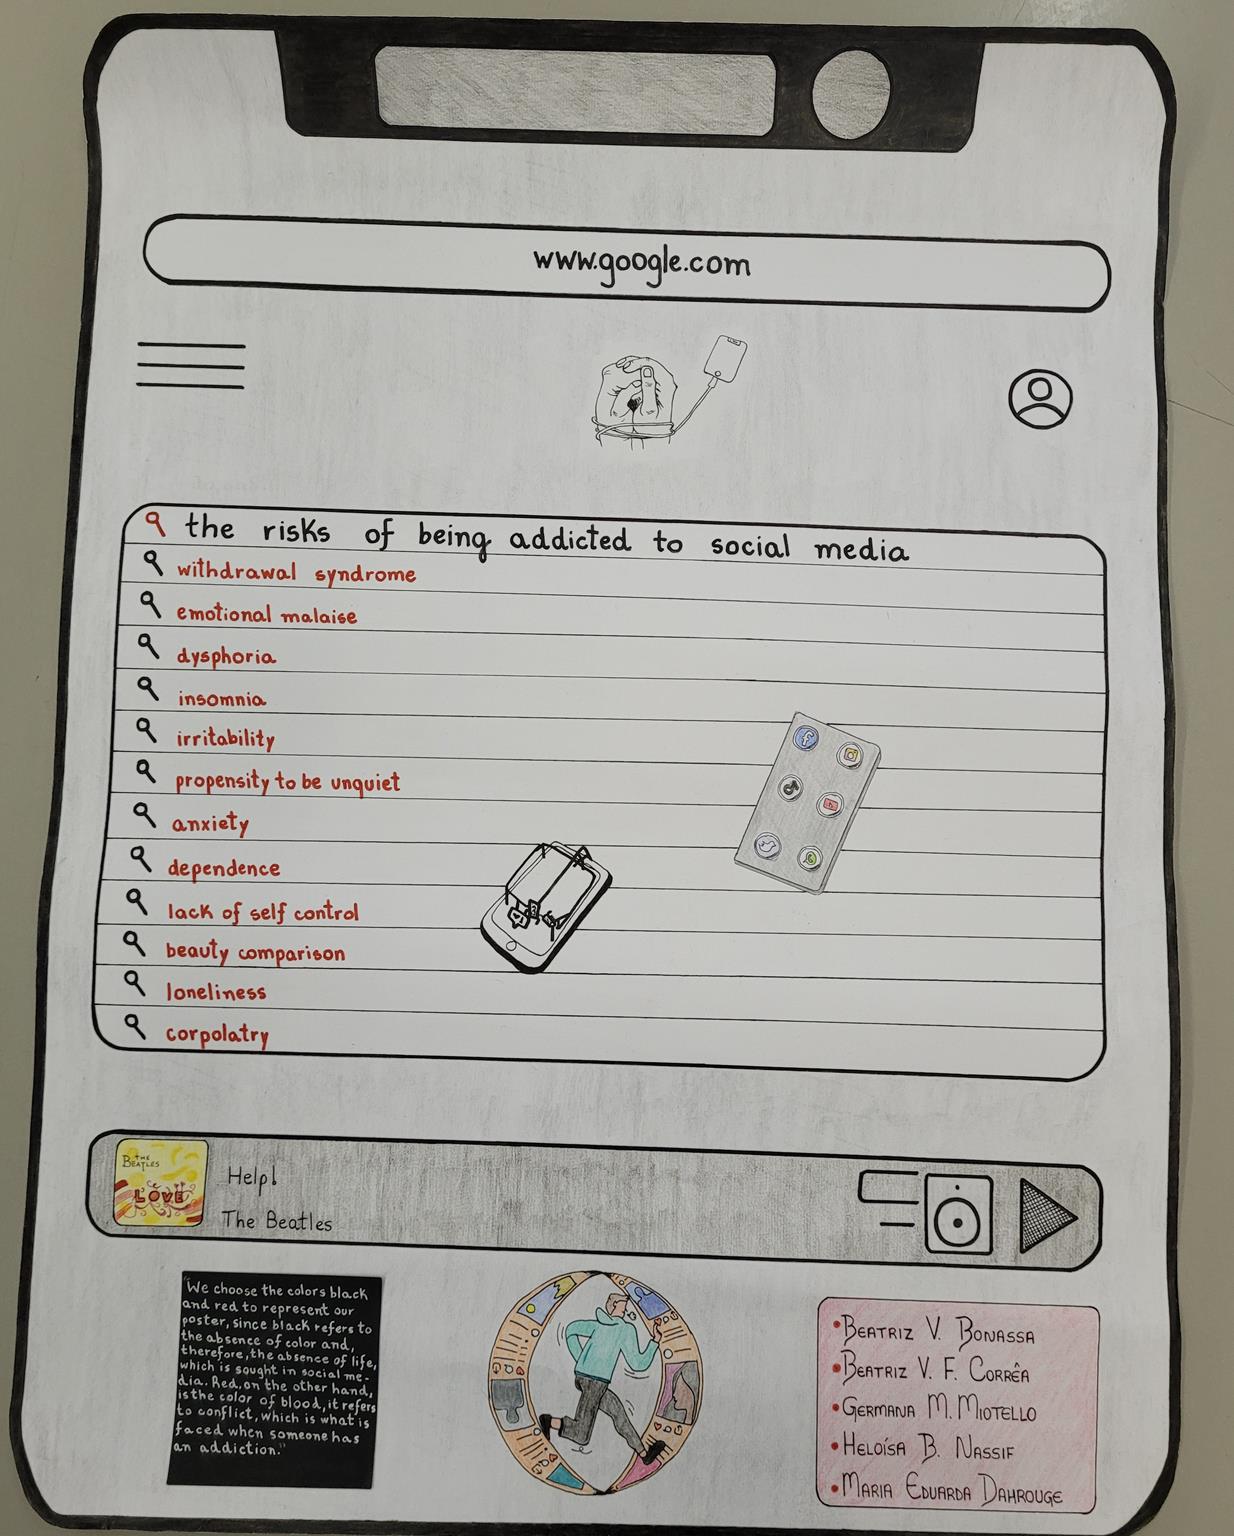 www.google.com
the risks of being addicted to social media
withdrawal syndrome
emotional malaise
dysphoria
insomnia
irritability
propensity to be unquiet
anxiety
dependence
lack of self control
beauty comparison
loneliness
corpolatry
THE
BEATLES
LOVE
Help!
The Beatles
"We choose the colors black
and red to represent our
poster, since black refers to
the absence of color and,
therefore, the absence of life,
which is sought in social me-
dia. Red, on the other hand,
is the color of blood, it refers
to conflict, which is what is
faced when someone has
an addiction."
•BEATRIZ V. BONASSA
•BEATRIZ V. F. CORRÊA
•GERMANA M. MIOTELLO
•HELOÍSA B. NASSIF
•MARIA EDUARDA DAHROUGE